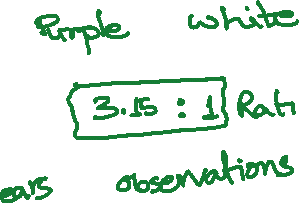 Purple white
3.15 : 1 Rati
ears observations